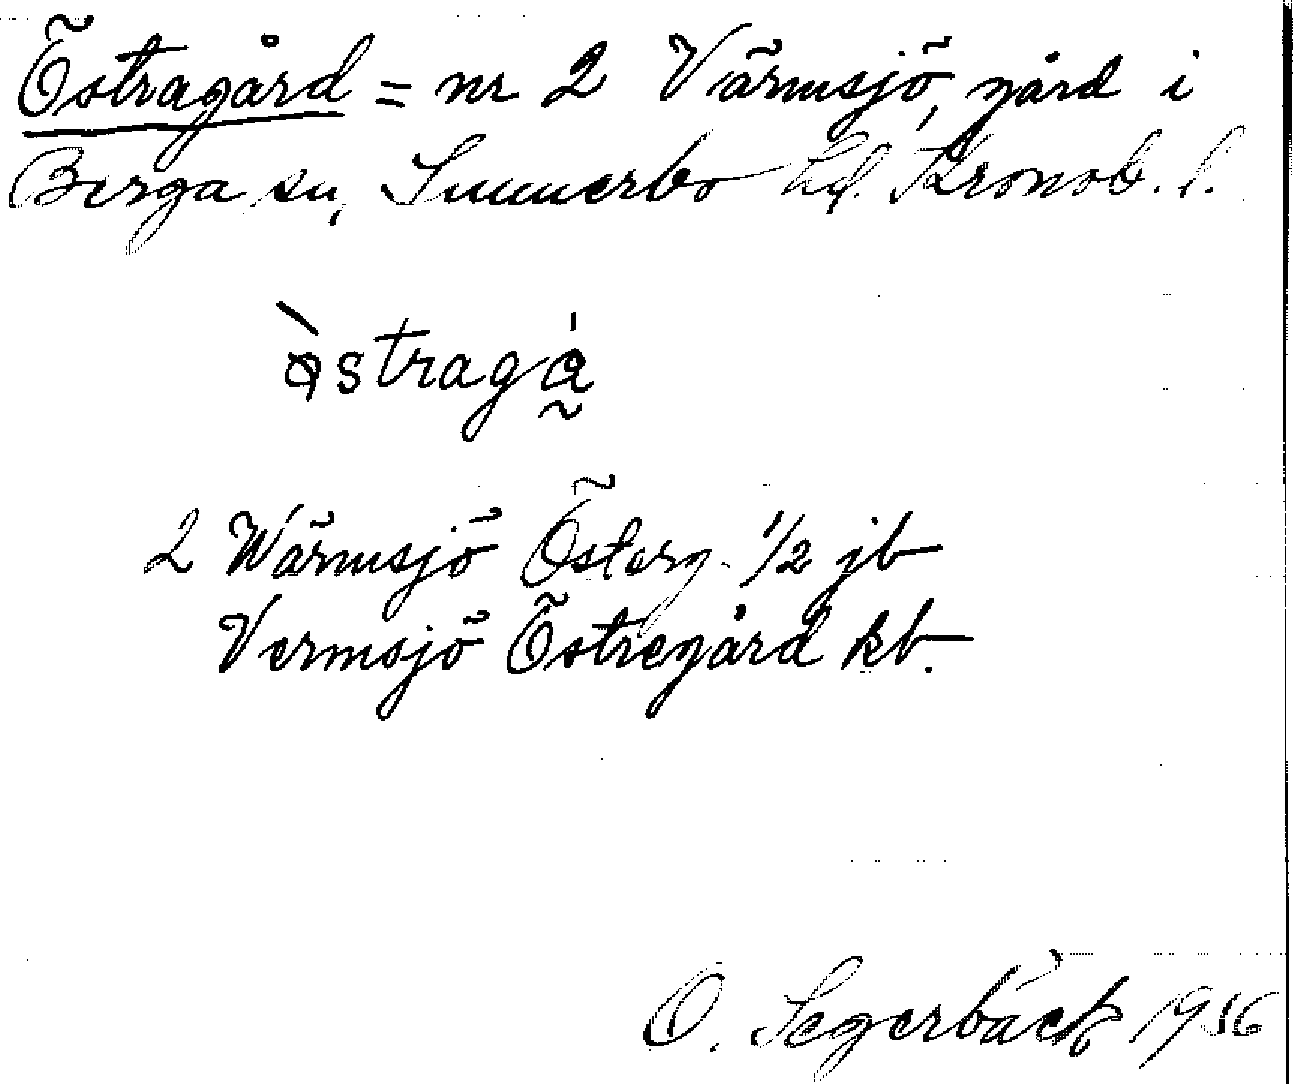 Östragård = nr 2 Värmsjö, gård i
Berga sn, Sunnerbo hd. Kronob. l.
östragå
2 Wärmsjö Österg. 1/2 jb
Vermsjö Östregård kb.
O. Segerbäck 1936